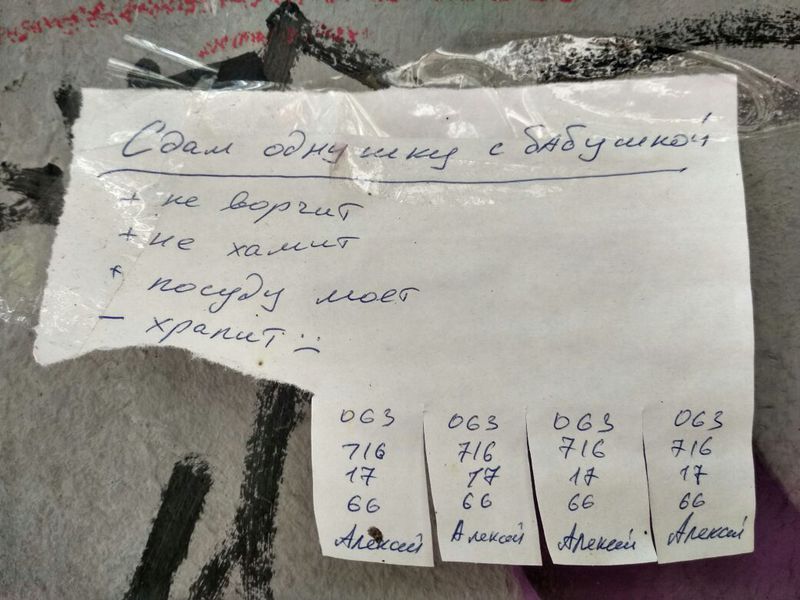 Сдам однушку с бабушкой
+ не ворчит
+ не хамит
+ посуду моет
– храпит :(
063
716
17
66
Алексей
063
716
17
66
Алексей
063
716
17
66
Алексей
063
716
17
66
Алексей